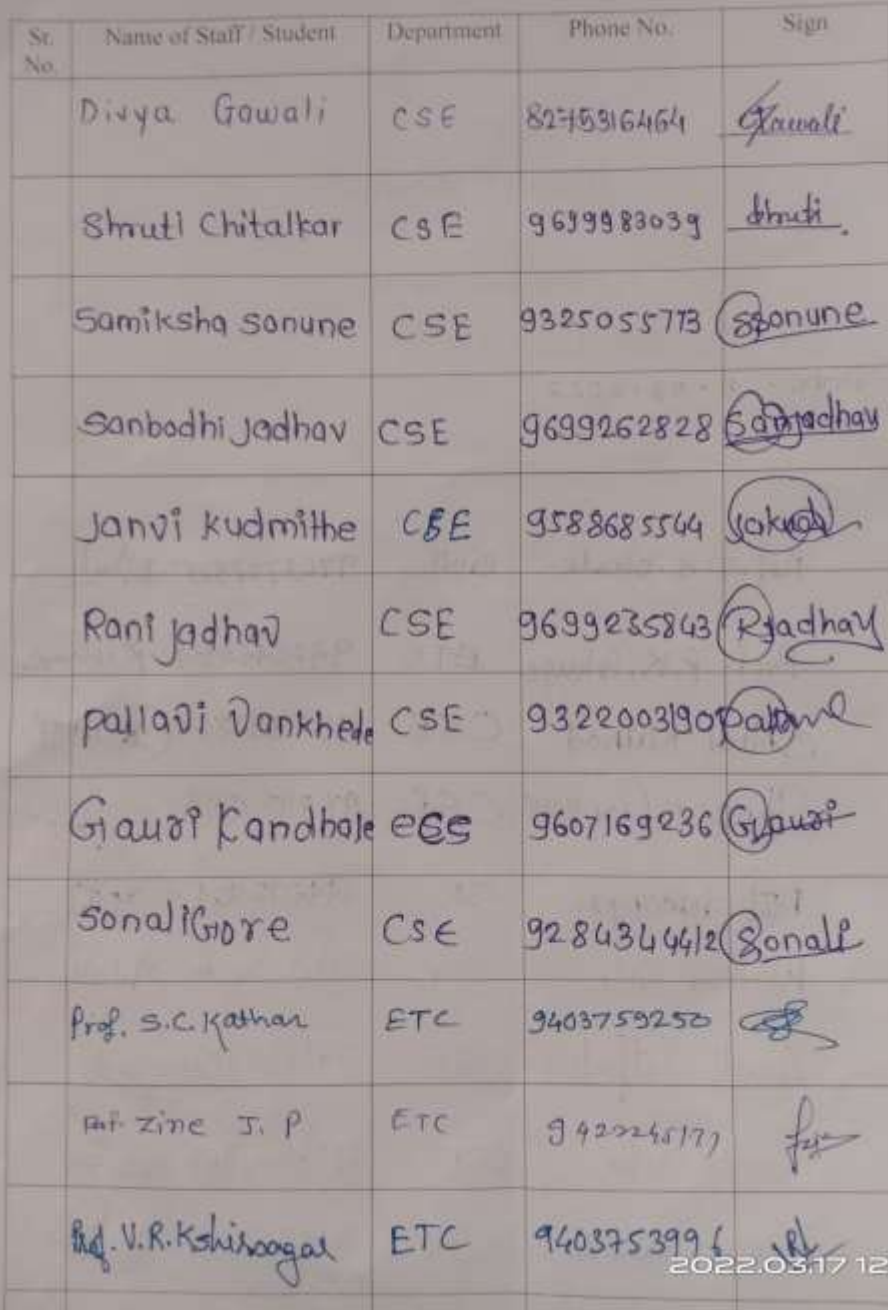 Sr. No. Name of Staff / Student Department Phone No. Sign
Divya Gowali CSE 8275316464 Gawali
Shruti Chitalkar CSE 9699983039 Shruti
Samiksha Sonune CSE 9325055773 SSonune
Sanbodhi Jadhav CSE 9699262828 Sanjadhav
Janvi Kudmithe CSE 9588685544
Rani jadhav CSE 9699235843 RJadhav
pallavi Vankhede CSE 9322003190
Gauri Kandhale ECS 9607169236 Gauri
Sonali Gore CSE 9284344412 Sonali
Prof. S.C. Kathar ETC 9403759250
Prof. Zine J. P ETC
Prof. V.R. Kshirsagar ETC 9403753996
2022.03.17 12